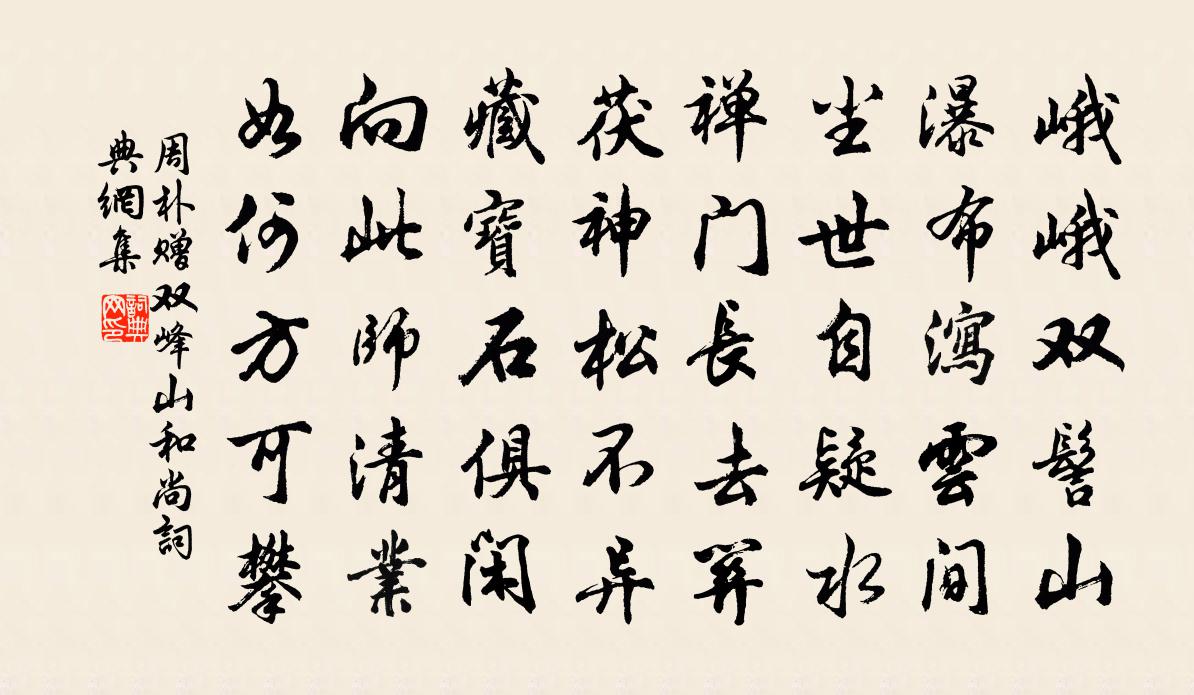 峨峨双髻山
瀑布瀉雲间
尘世自疑水
禅门長去關
茯神松不异
藏寶石俱闲
向此師清業
如何方可攀
周朴赠双峰山和尚詞
典網集
詞典
网印